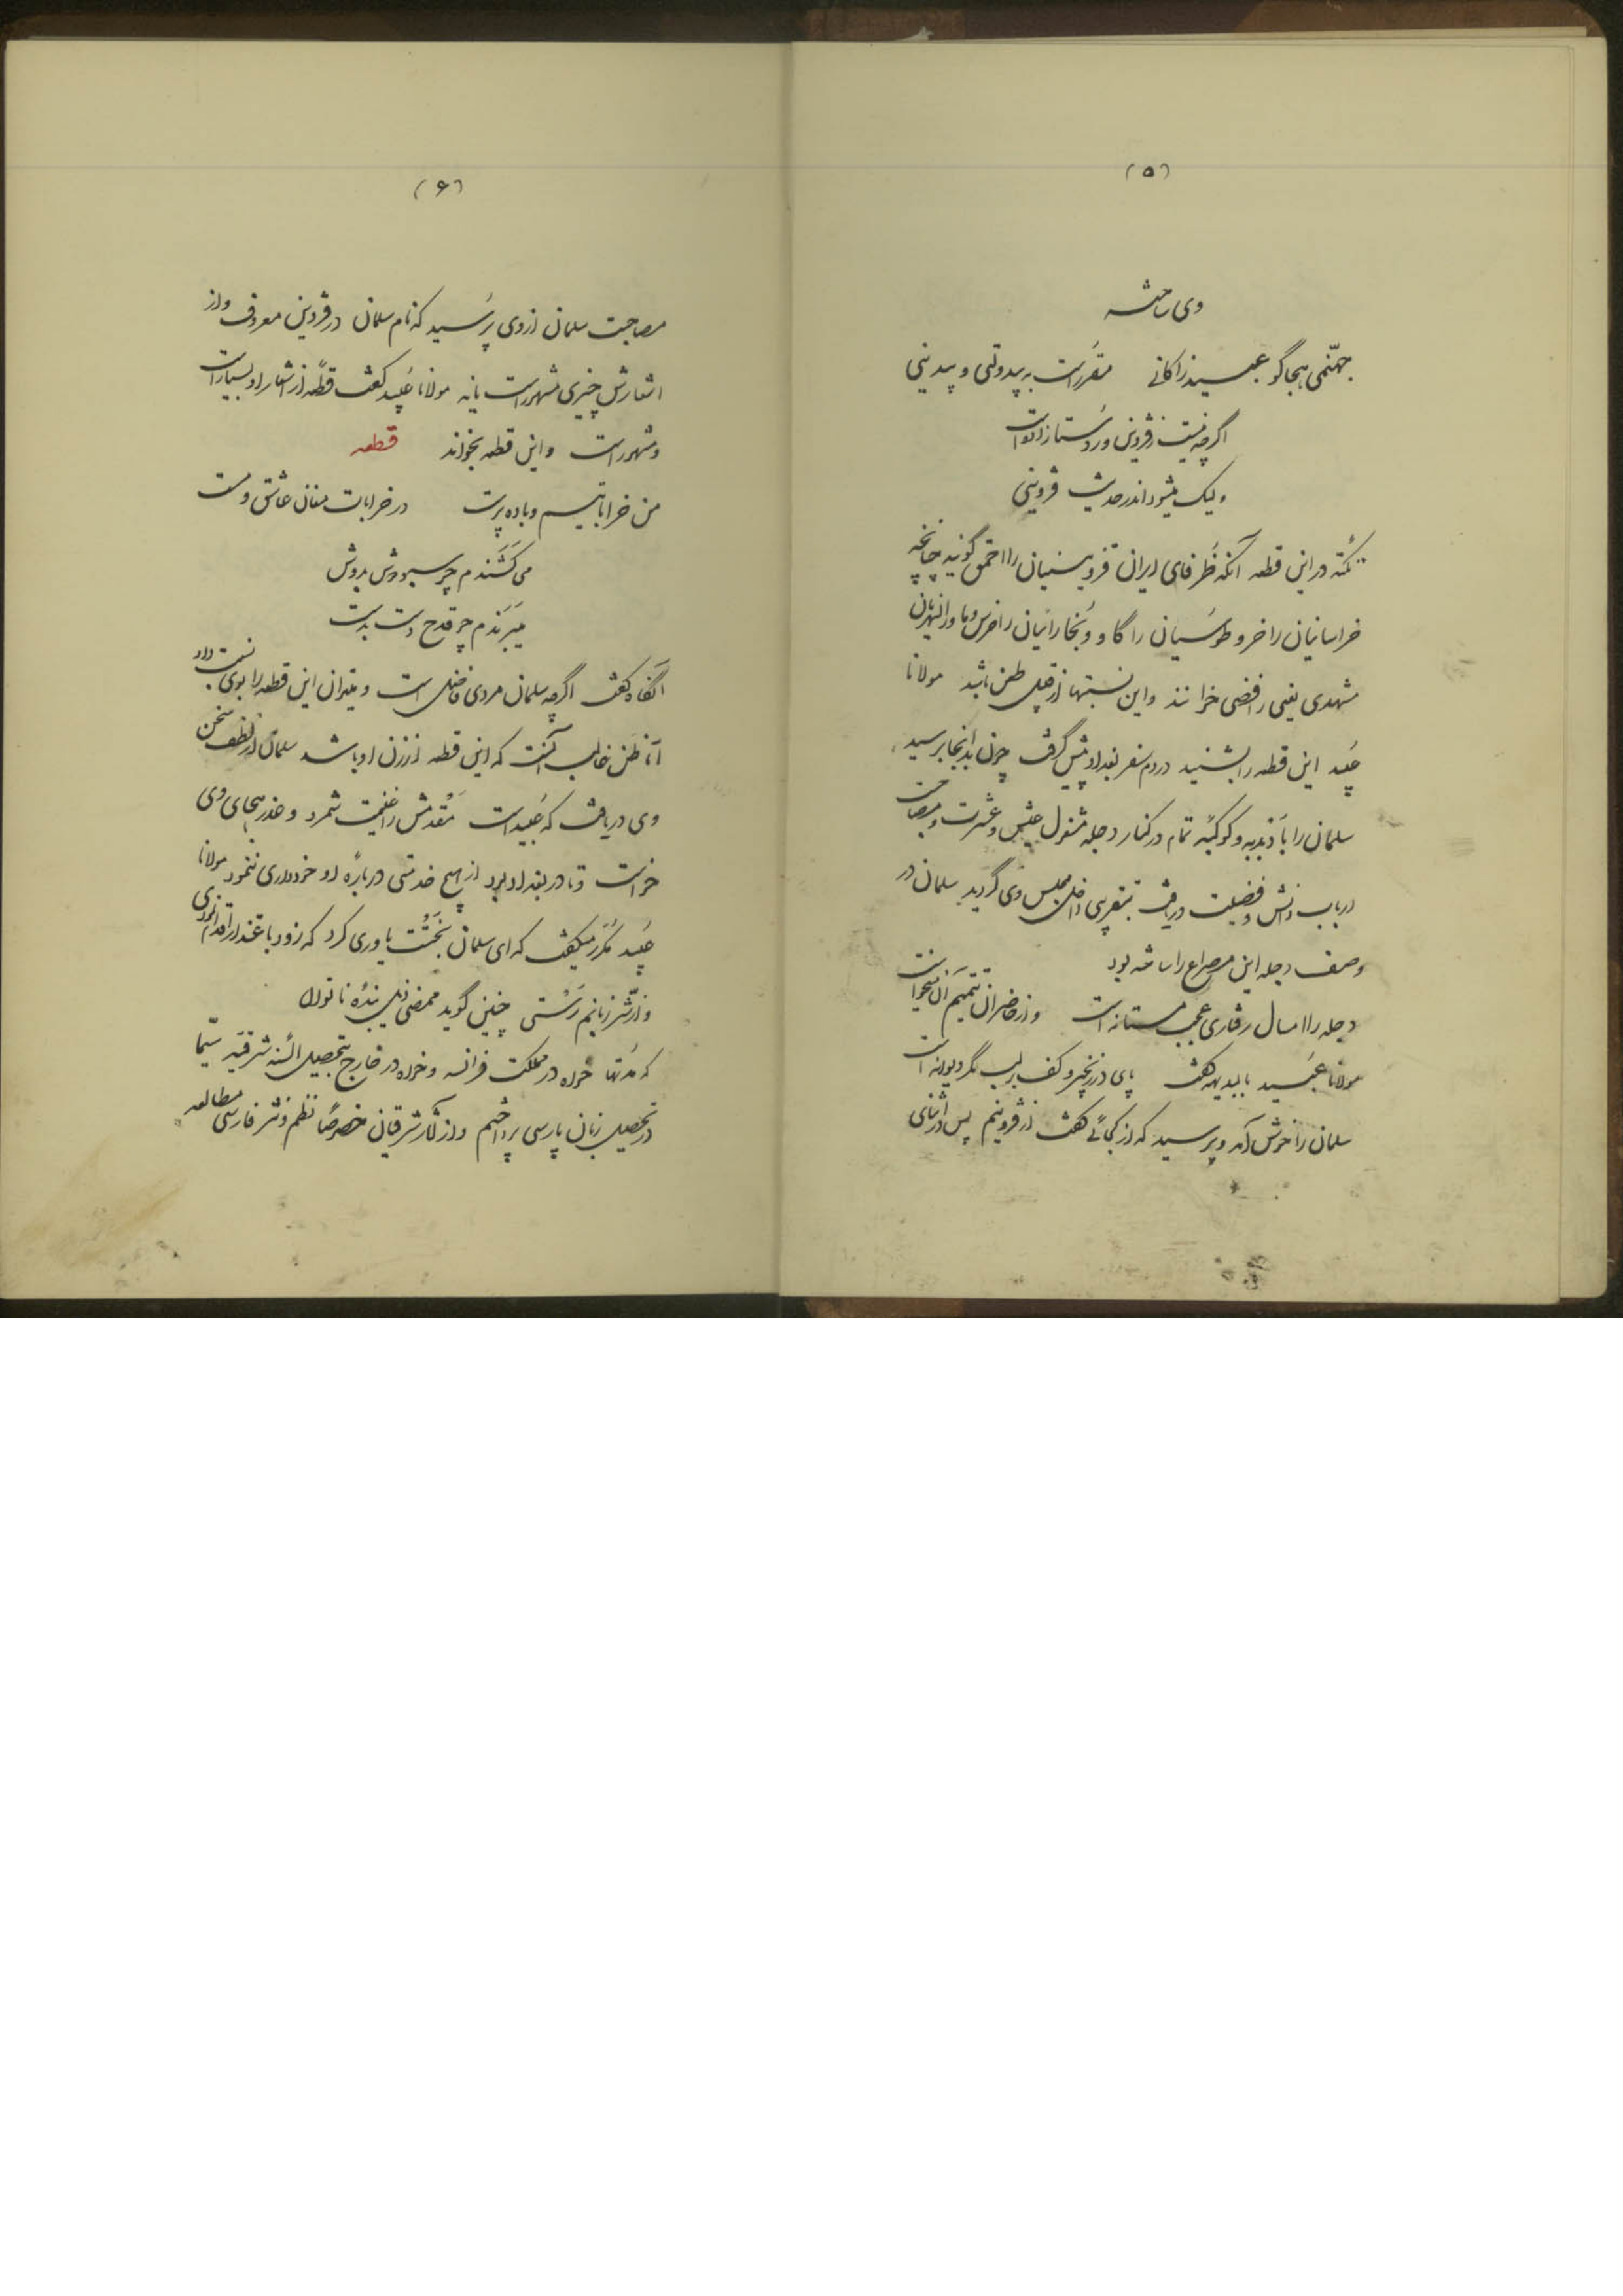 (۵)
وی ساخته
جهنّمی هجاگو عبید زاکانی مقرّرست به بیدولتی و بیدینی
اگرچه نیست ز قزوین و روستازاده است
ولیک میشود اندر حدیث قزوینی
نکته در این قطعه آنکه ظُرفای ایران قزوینیان را احمق گویند چنانچه
خراسانیان را خر و طوسیان را گاو و بُخارائیان را خرس و ماوراءالنهریان
مشهدی یعنی رافضی خوانند و این نسبتها از قبیل طعن باشد مولانا
عُبید این قطعه را بشنید در دم سفر بغداد پیش گرفت چون بدانجا برسید
سلمان را با دَبدبه و کوکبهٔ تمام در کنار دجله مشغول عیش و عشرت و مصاحبت
ارباب دانش و فضیلت دریافت بتقریبی داخل مجلس وی گردید سلمان در
وصف دجله این مصراع را ساخته بود
دجله را امسال رفتاری عجب مستانه است و از حاضران تتمیم آن میخواست
مولانا عُبید بالبدیهه گفت پای در زنجیر و کف بر لب مگر دیوانه است
سلمان را خوش آمد و پرسید که از کجائی گفت از قزوینم پس در اثنای
(۶)
مصاحبت سلمان از وی پُرسید که نام سلمان در قزوین معروف و از
اشعارش چیزی مشهور است یا نه مولانا عُبید گفت قطعهٔ از اشعار او بسیار است
و مشهور است و این قطعه بخواند قطعه
من خراباتیم و باده پرست در خرابات مغان عاشق و مست
می کَشَندم چو سبو دوش بدوش
میبَرَندم چو قدح دست بدست
آنگاه گفت اگرچه سلمان مردی فاضل است و میتوان این قطعه را بوی نسبت داد
امّا ظنّ غالب آنست که این قطعه از زن او باشد سلمان از لطف سخن
وی دریافت که عُبید است مَقدمش را غنیمت شمرد و عذر هجای وی
خواست و تا در بغداد بود از هیچ خدمتی دربارهٔ او خودداری ننمود مولانا
عُبید مُکرّر میگفت که ای سلمان بَختت یاوری کرد که زود باعتذار اقدام نمودی
و از شرّ زبانم رَستی چنین گوید ممضی ذیل بندهٔ ناتوان
که مُدّتها خواه در مملکت فرانسه و خواه در خارج بتحصیل السنه شرقیّه سیّما
در تحصیل زبان پارسی پرداختیم و از آثار شرقیان خصوصًا نظم و نثر فارسی مطالعه